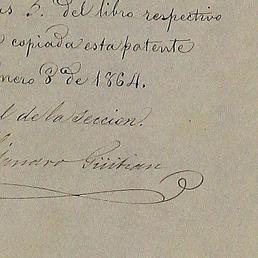 as 5. del libro respectivo
copiada esta patente
nero 8 de 1864.
l de la seccion.
Genaro Güitian